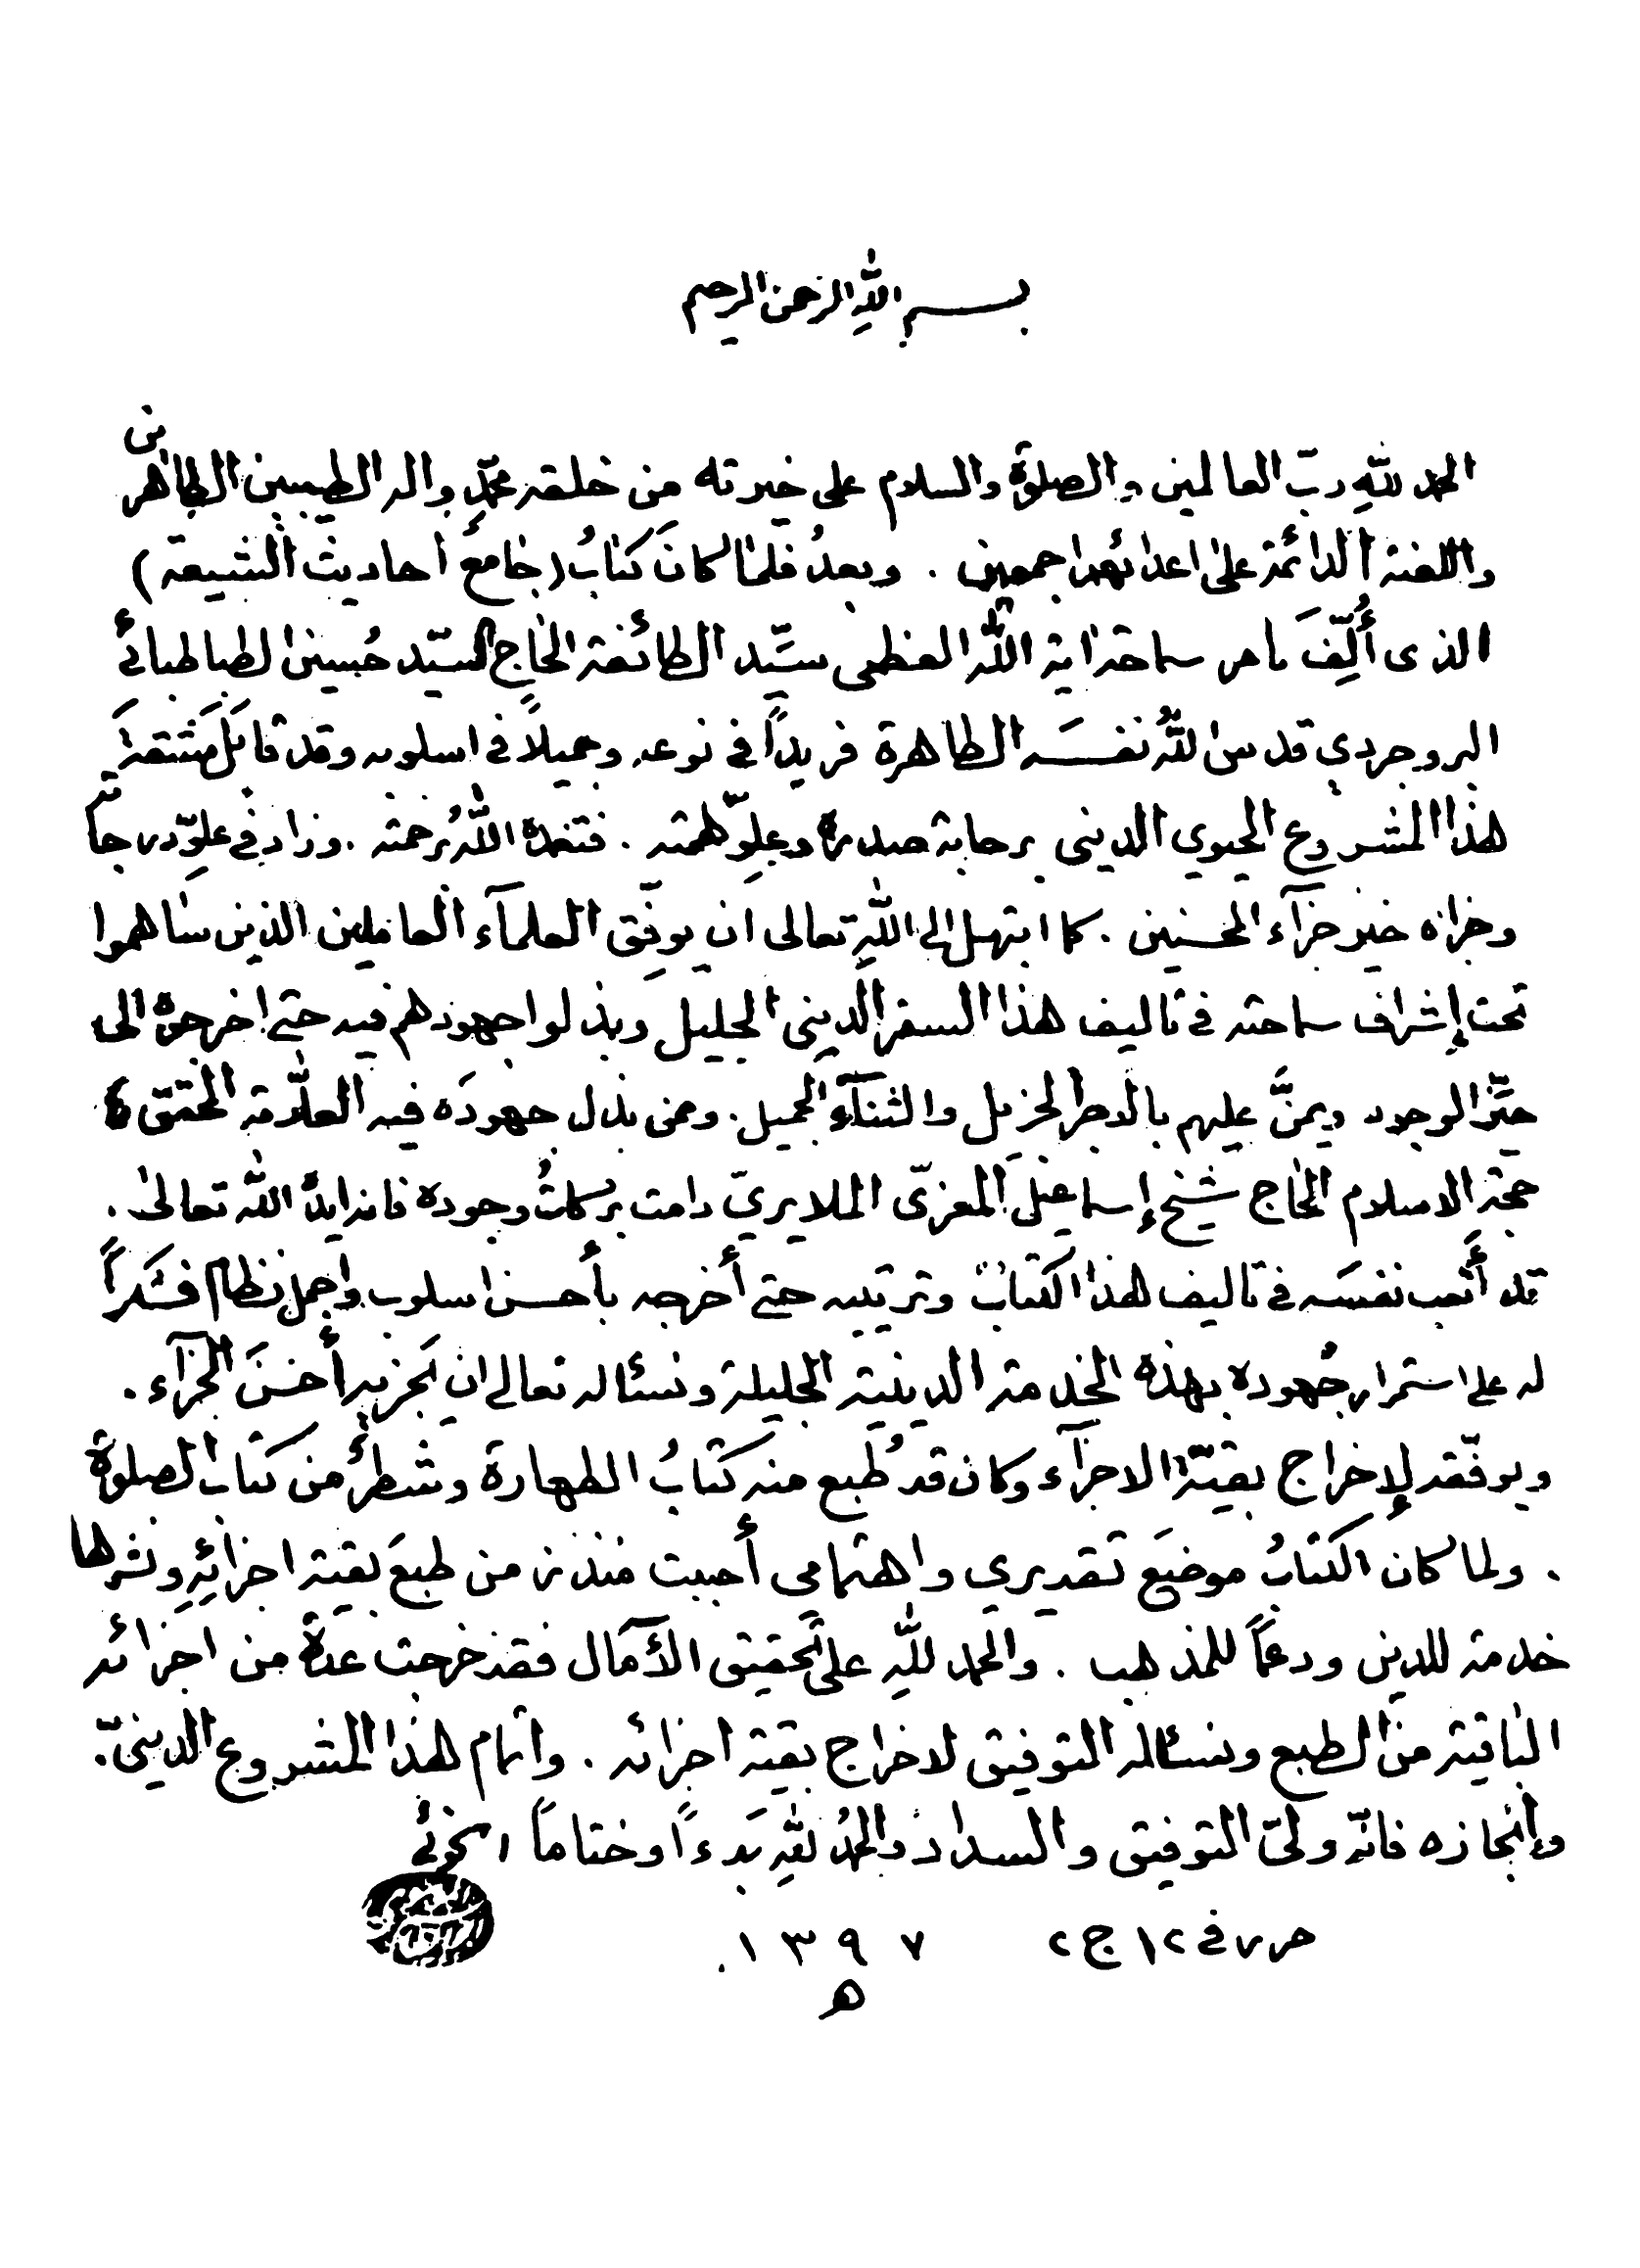 بسم اللهِ الرحمن الرحيم
الحمد للّهِ ربّ العالمين والصلوة والسلام على خيرته من خلقه محمّدٍ واله الطيبين الطاهرين
واللعنة الدائمة على اعدائهم اجمعين . وبعدُ فلما كانَ كتابُ (جامعُ احاديث الشيعة)
الذى أُلِّفَ بامر سماحة اية الله العظمى سيّد الطائفة الحاج السيّد حُسين الطباطبائي
البروجردي قدس اللهُ نفسَه الطاهرة فريداً في نوعه وجميلاً في اسلوبه وقد قابَلَ مشقةَ
هذا المشروع الحيوي الديني برحابة صدره وعلوِّ همته . فتغمده اللهُ برحمته . وزاد في علوِّ درجاته
وجزاه خير جزآء المحسنين . كما ابتهل إلى اللهِ تعالى ان يوفِّق العلمآء العاملين الذين ساهموا
تحت إشراف سماحته في تاليف هذا السفر الديني الجليل وبذلوا جهودهم فيه حتى اخرجوه الى
حيّز الوجود ويمنَّ عليهم بالاجر الجزيل والثنآء الجميل . وممن بذل جهودَه فيه العلّامة المحقق
حجة الاسلام الحاج شيخ إسماعيل المعزّى الملايريّ دامت بركاتُ وجوده فانه ايده الله تعالىٰ .
قد أتعب نفسَه في تاليف هذا الكتاب وترتيبه حتى أخرجه بأحسن اسلوب واجمل نظام فشكراً
له على استمرار جُهوده بهذه الخدمة الدينية الجليلة ونسئاله تعالى ان يَجزيه أحسنَ الجزآء .
ويوفّقه لإخراج بقيّة الاجزآء وكان قد طُبع منه كتابُ الطهارة وشطرٌ من كتاب الصلوة
. ولما كان الكتابُ موضعَ تقديري واهتمامي أحببت منذ زمن طبعَ بقية اجزائِهِ ونشرها
خدمة للدين ودعماً للمذهب . والحمد للّهِ على تحقيق الآمال فقد خرجت عدة من اجزائه
الباقية من الطبع ونسئاله التوفيق لاخراج بقية اجزائه . واتمام هذا المشروع الدينيّ .
وإنجازه فانّه وليّ التوفيق والسداد والحمدُ للّهِ بَدءاً وختاماً الخوئي
حرر في ١٢ ج ٢ ١٣٩٧ .
ه